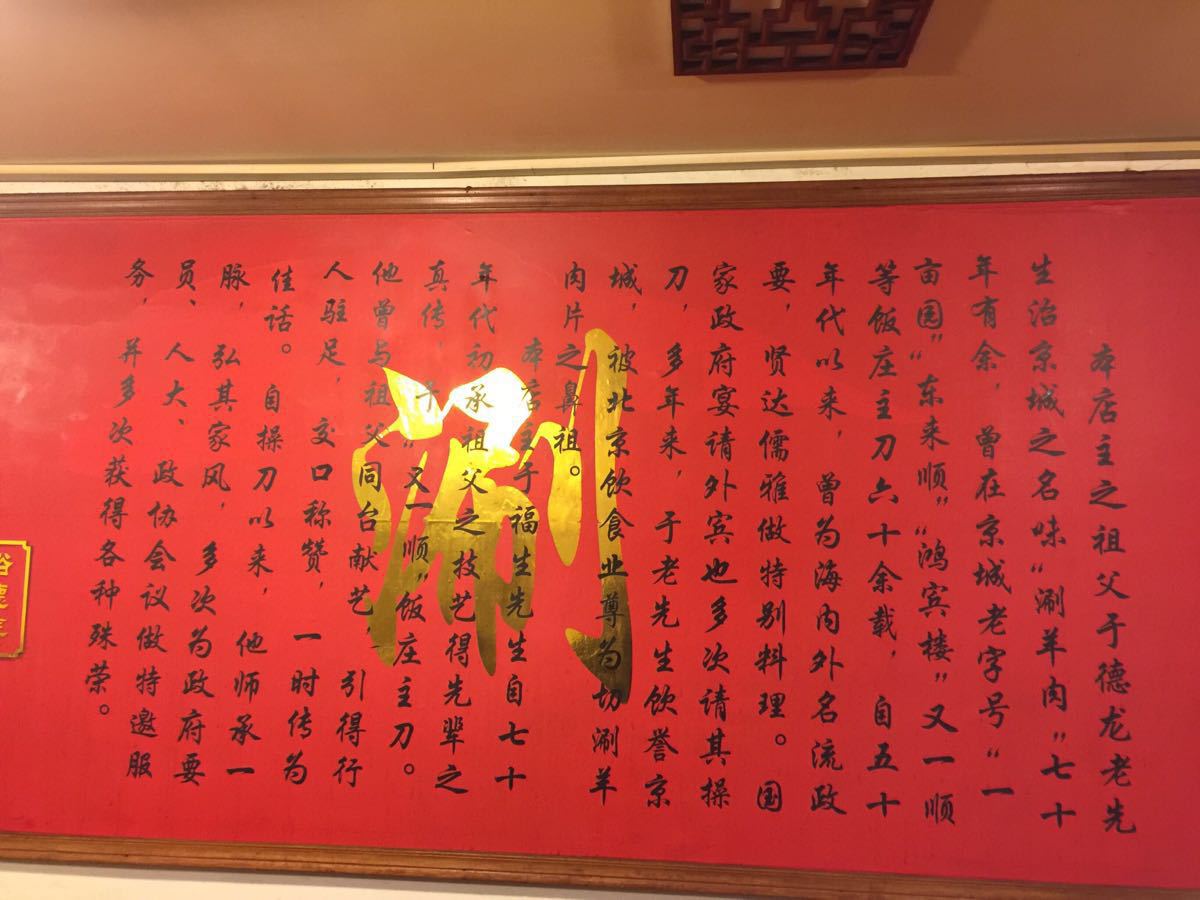 本店主之祖父于德龙老先
生治京城之名味“涮羊肉”七十
年有余，曾在京城老字号“一
亩园”“东来顺”“鸿宾楼”又一顺
等饭庄主刀六十余载，自五十
年代以来，曾为海内外名流政
要，贤达儒雅做特别料理。国
家政府宴请外宾也多次请其操
刀，多年来，于老先生饮誉京
城，被北京饮食业尊为切涮羊
肉片之鼻祖。
本店主于福生先生自七十
年代初承祖父之技艺得先辈之
真传，于“又一顺”饭庄主刀。
他曾与祖父同台献艺，引得行
人驻足，交口称赞，一时传为
佳话。自操刀以来，他师承一
脉，弘其家风，多次为政府要
员、人大、政协会议做特邀服
务，并多次获得各种殊荣。
涮